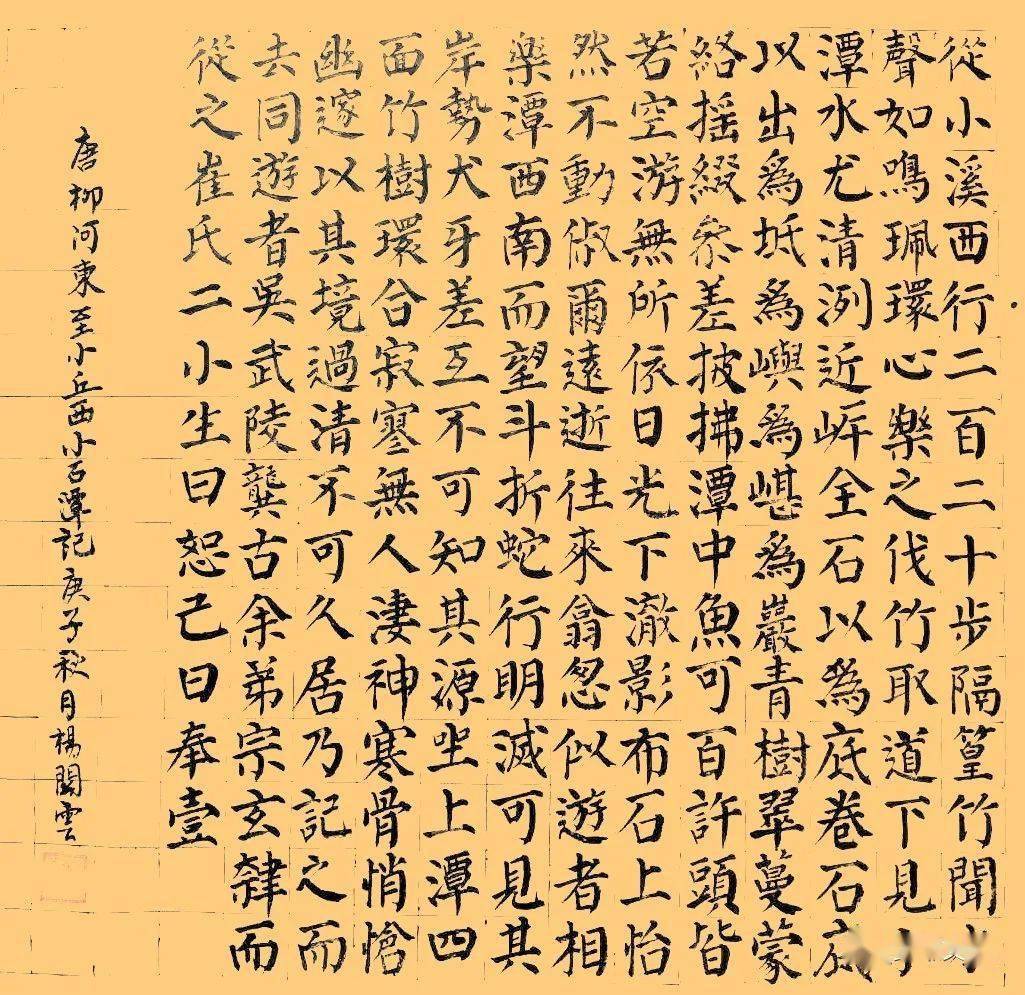 從小溪西行二百二十步隔篁竹聞水
聲如鳴珮環心樂之伐竹取道下見小
潭水尤清洌近岸全石以為底卷石底
以出為坻為嶼為嵁為巖青樹翠蔓蒙
絡搖綴參差披拂潭中魚可百許頭皆
若空游無所依日光下澈影布石上怡
然不動俶爾遠逝往來翕忽似遊者相
樂潭西南而望斗折蛇行明滅可見其
岸勢犬牙差互不可知其源坐上潭四
面竹樹環合寂寥無人淒神寒骨悄愴
幽邃以其境過清不可久居乃記之而
去同遊者吳武陵龔古余弟宗玄隸而
從之崔氏二小生曰恕己曰奉壹
唐柳河東至小丘西小石潭記庚子秋月楊雲